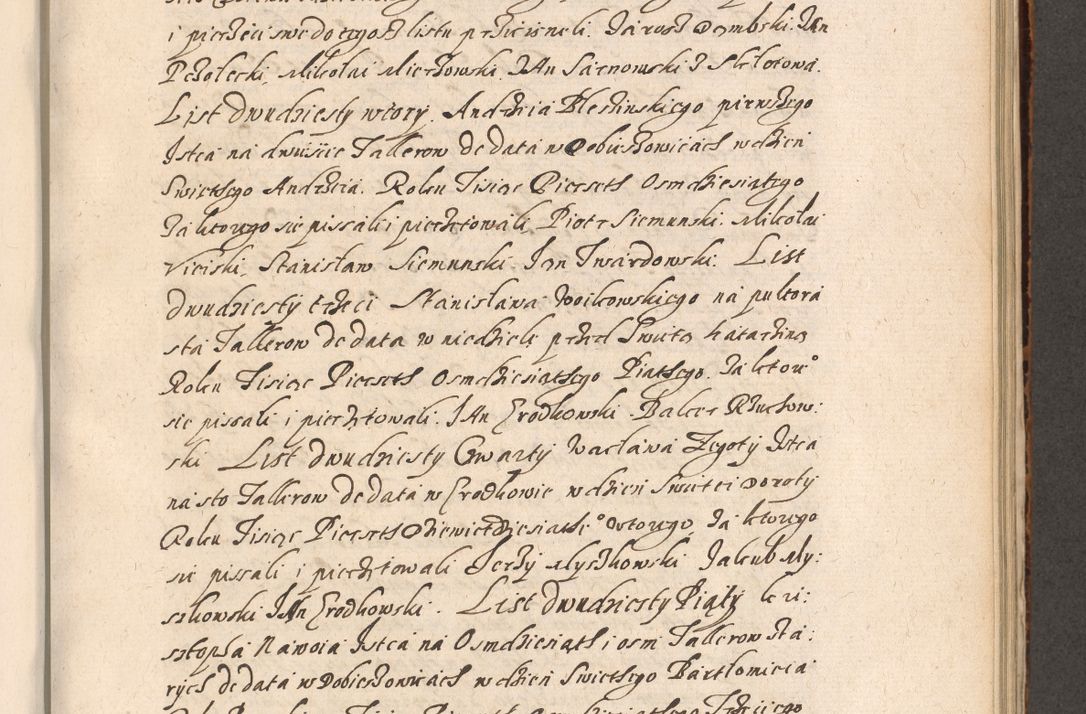 i pieczęci swe do tego listu przicisneli. Jarosz Dembski. Jan
Pcholecki, Mikolai Mierzowski, JAn Sarnowski Z Sklotowa.
List dwudziesty wtory. Andrzeia Bleszinskiego pierwszego
Istca na dwuscie Tallerow de data w Dobieszowicach w dzien
Swietego Andrzeia. Roku Tisiąc Piecseth Osmdziesiątego
Za ktorego się pissali i pieczętowali Piotr Siemunski. Mikolai
Viciski, Stanisław Siemunski. Jan Twardowski. List
dwudziesty trzeci Stanisława Woikowskiego na pultora
sta Tallerow de data w niedzielę przed Swietą Katarziną
Roku Tisiąc Piecseth Osmdziesiathego Piathego. Za ktore°
się pissali i pieczętowali. JAn Srodkowski. Balcer Rzuchow:
ski List dwudziesty Czwarty Wacława Zegoty Istca
na sto Tallerow de data w Srodkowie w dzien Swietei Doroty
Roku Tisiąc Piecseth Dziewiędziesiathe° wtorego, Za ktorego
się pissali i pieczętowali Jerzy Myszkowski Jakub My:
szkowski JAn Srodkowski. List dwudziesty Piąty krzi:
sztopha Nawoia Istca na Osmdziesiąth i osm Tallerow sta:
rych de data w Dobieszowicach w dzien Swiethego Bartłomieia